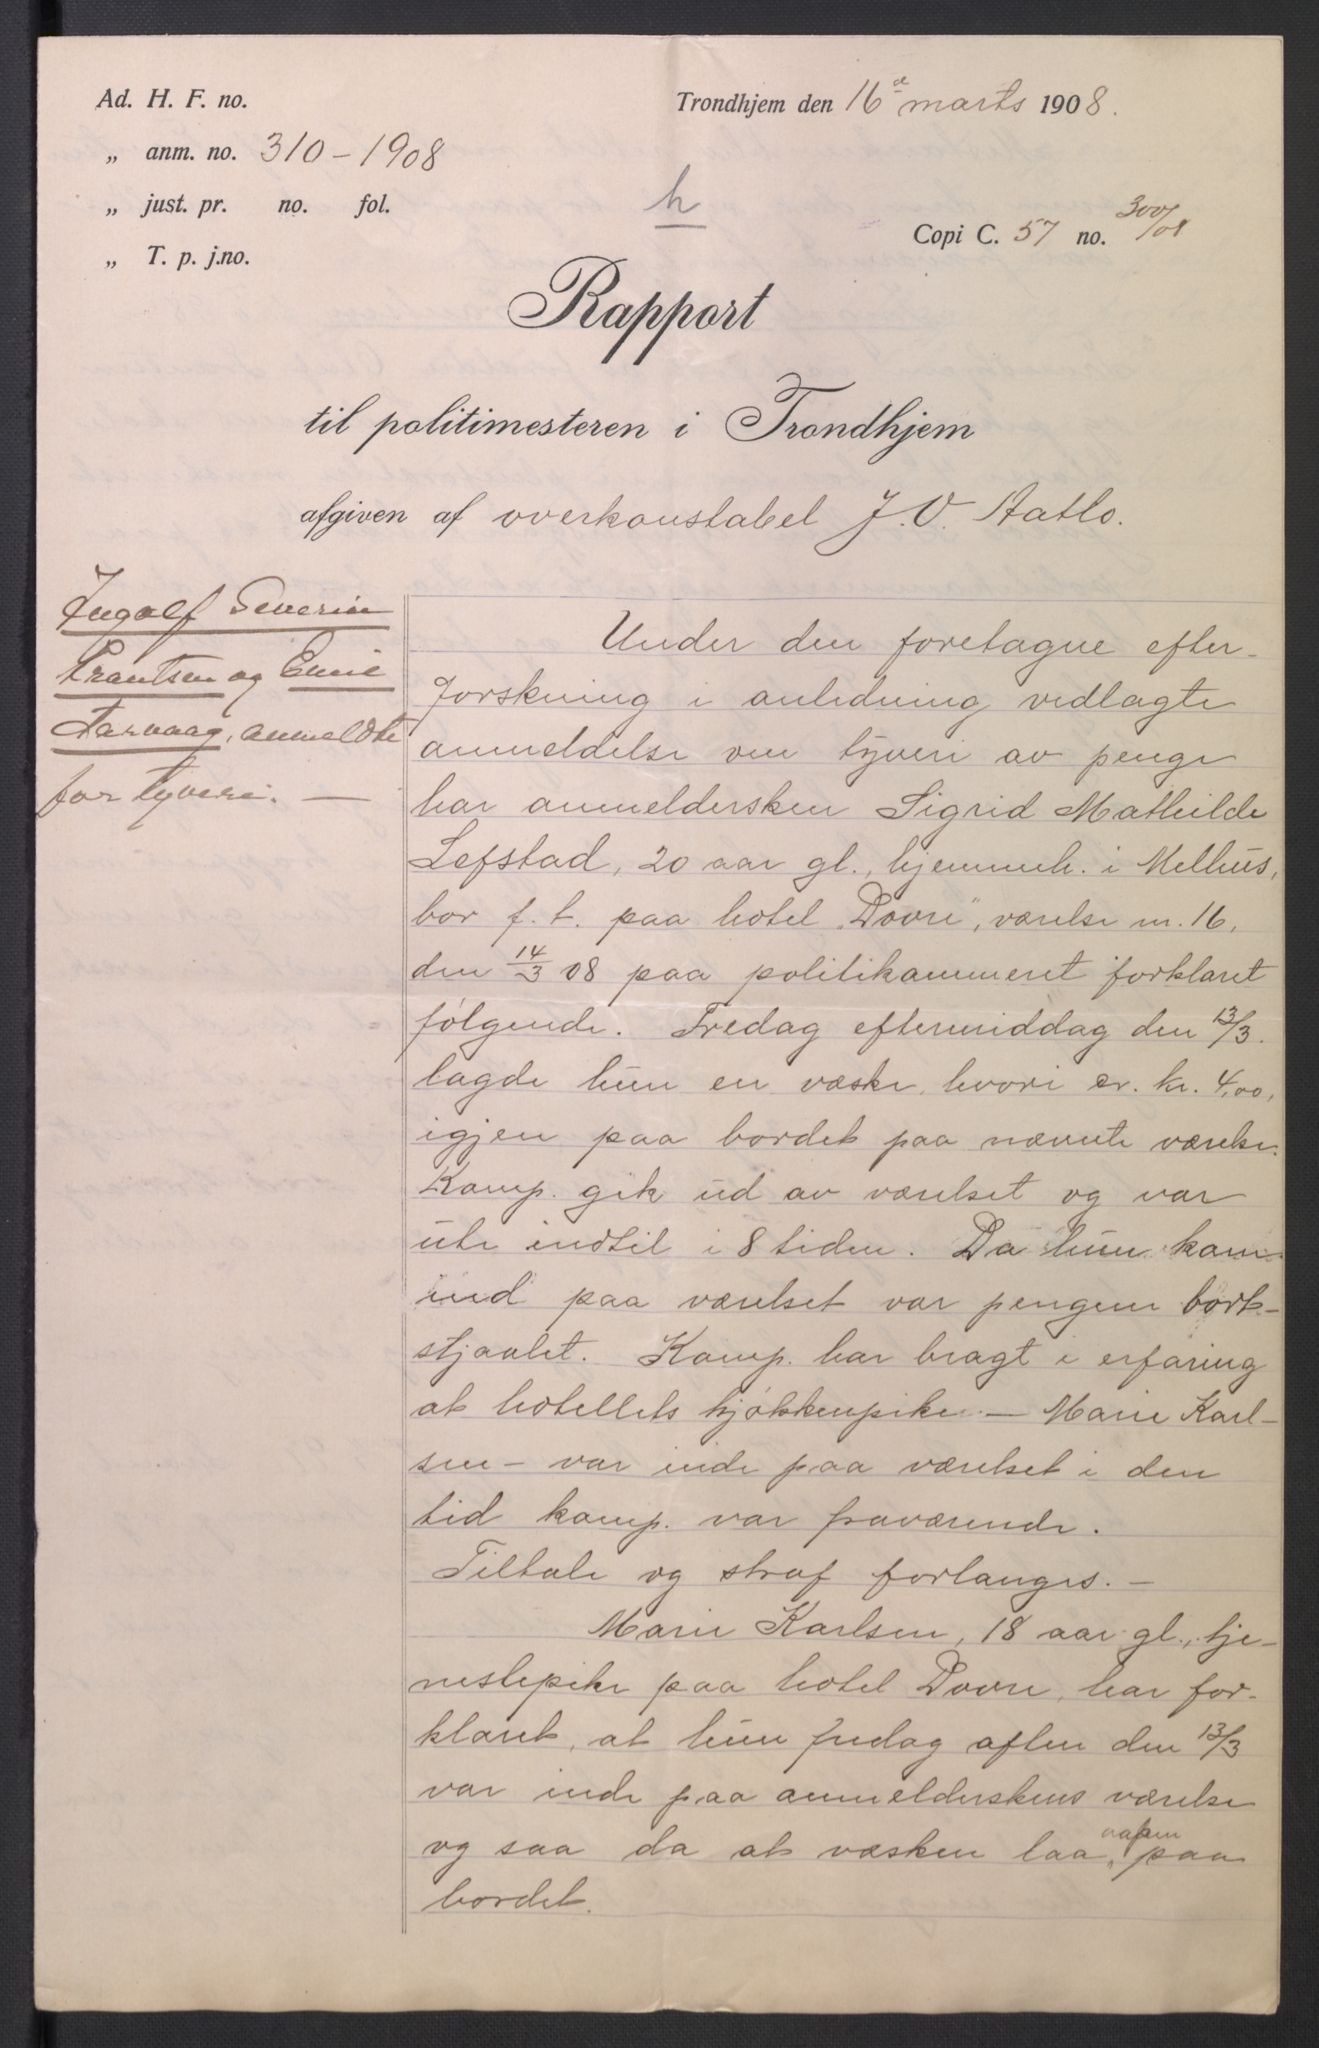 Ad. H. F. no.
Trondhjem den 16d marts 1908.
„ anm. no. 310-1908
„ just. pr. no. fol.
h
Copi C. 57 no. 300/08
„ T. p. j.no.
Rapport
til politimesteren i Trondhjem
afgiven af overkonstabel J. O. Aatlo.
Ingolf Severin
Frantsen og Emie
Tarvaag, anmeldte
for tyveri. —
Under den foretagne efter-
forskning i anledning vedlagte
anmeldelse om tyveri av penge
har anmeldersken Sigrid Mathilde
Lefstad, 20 aar gl., hjemmeh. i Melhus,
bor f. t. paa hotel „Dovre”, værelse nr. 16,
den 14/3 08 paa politikammeret forklaret
følgende. Fredag eftermiddag den 13/3.
lagde hun en væske, hvori er. kr. 4,00,
igjen paa bordet paa nævnte værelse.
Komp. gik ud av værelset og var
ute indtil i 8 tiden. Da hun kom
ind paa værelset var pengene bort-
stjaalet. Komp. har bragt i erfaring
at hotellets kjøkkenpike — Marie Karl-
sen — var inde paa værelset i den
tid komp. var fraværende.
Tiltale og straf forlanges. —
Marie Karlsen, 18 aar gl., tje-
nestepike paa hotel Dovre, har for-
klaret, at hun fredag aften den 13/3
var inde paa anmelderskens værelse
og saa da at væsken laa aapen paa
bordet.